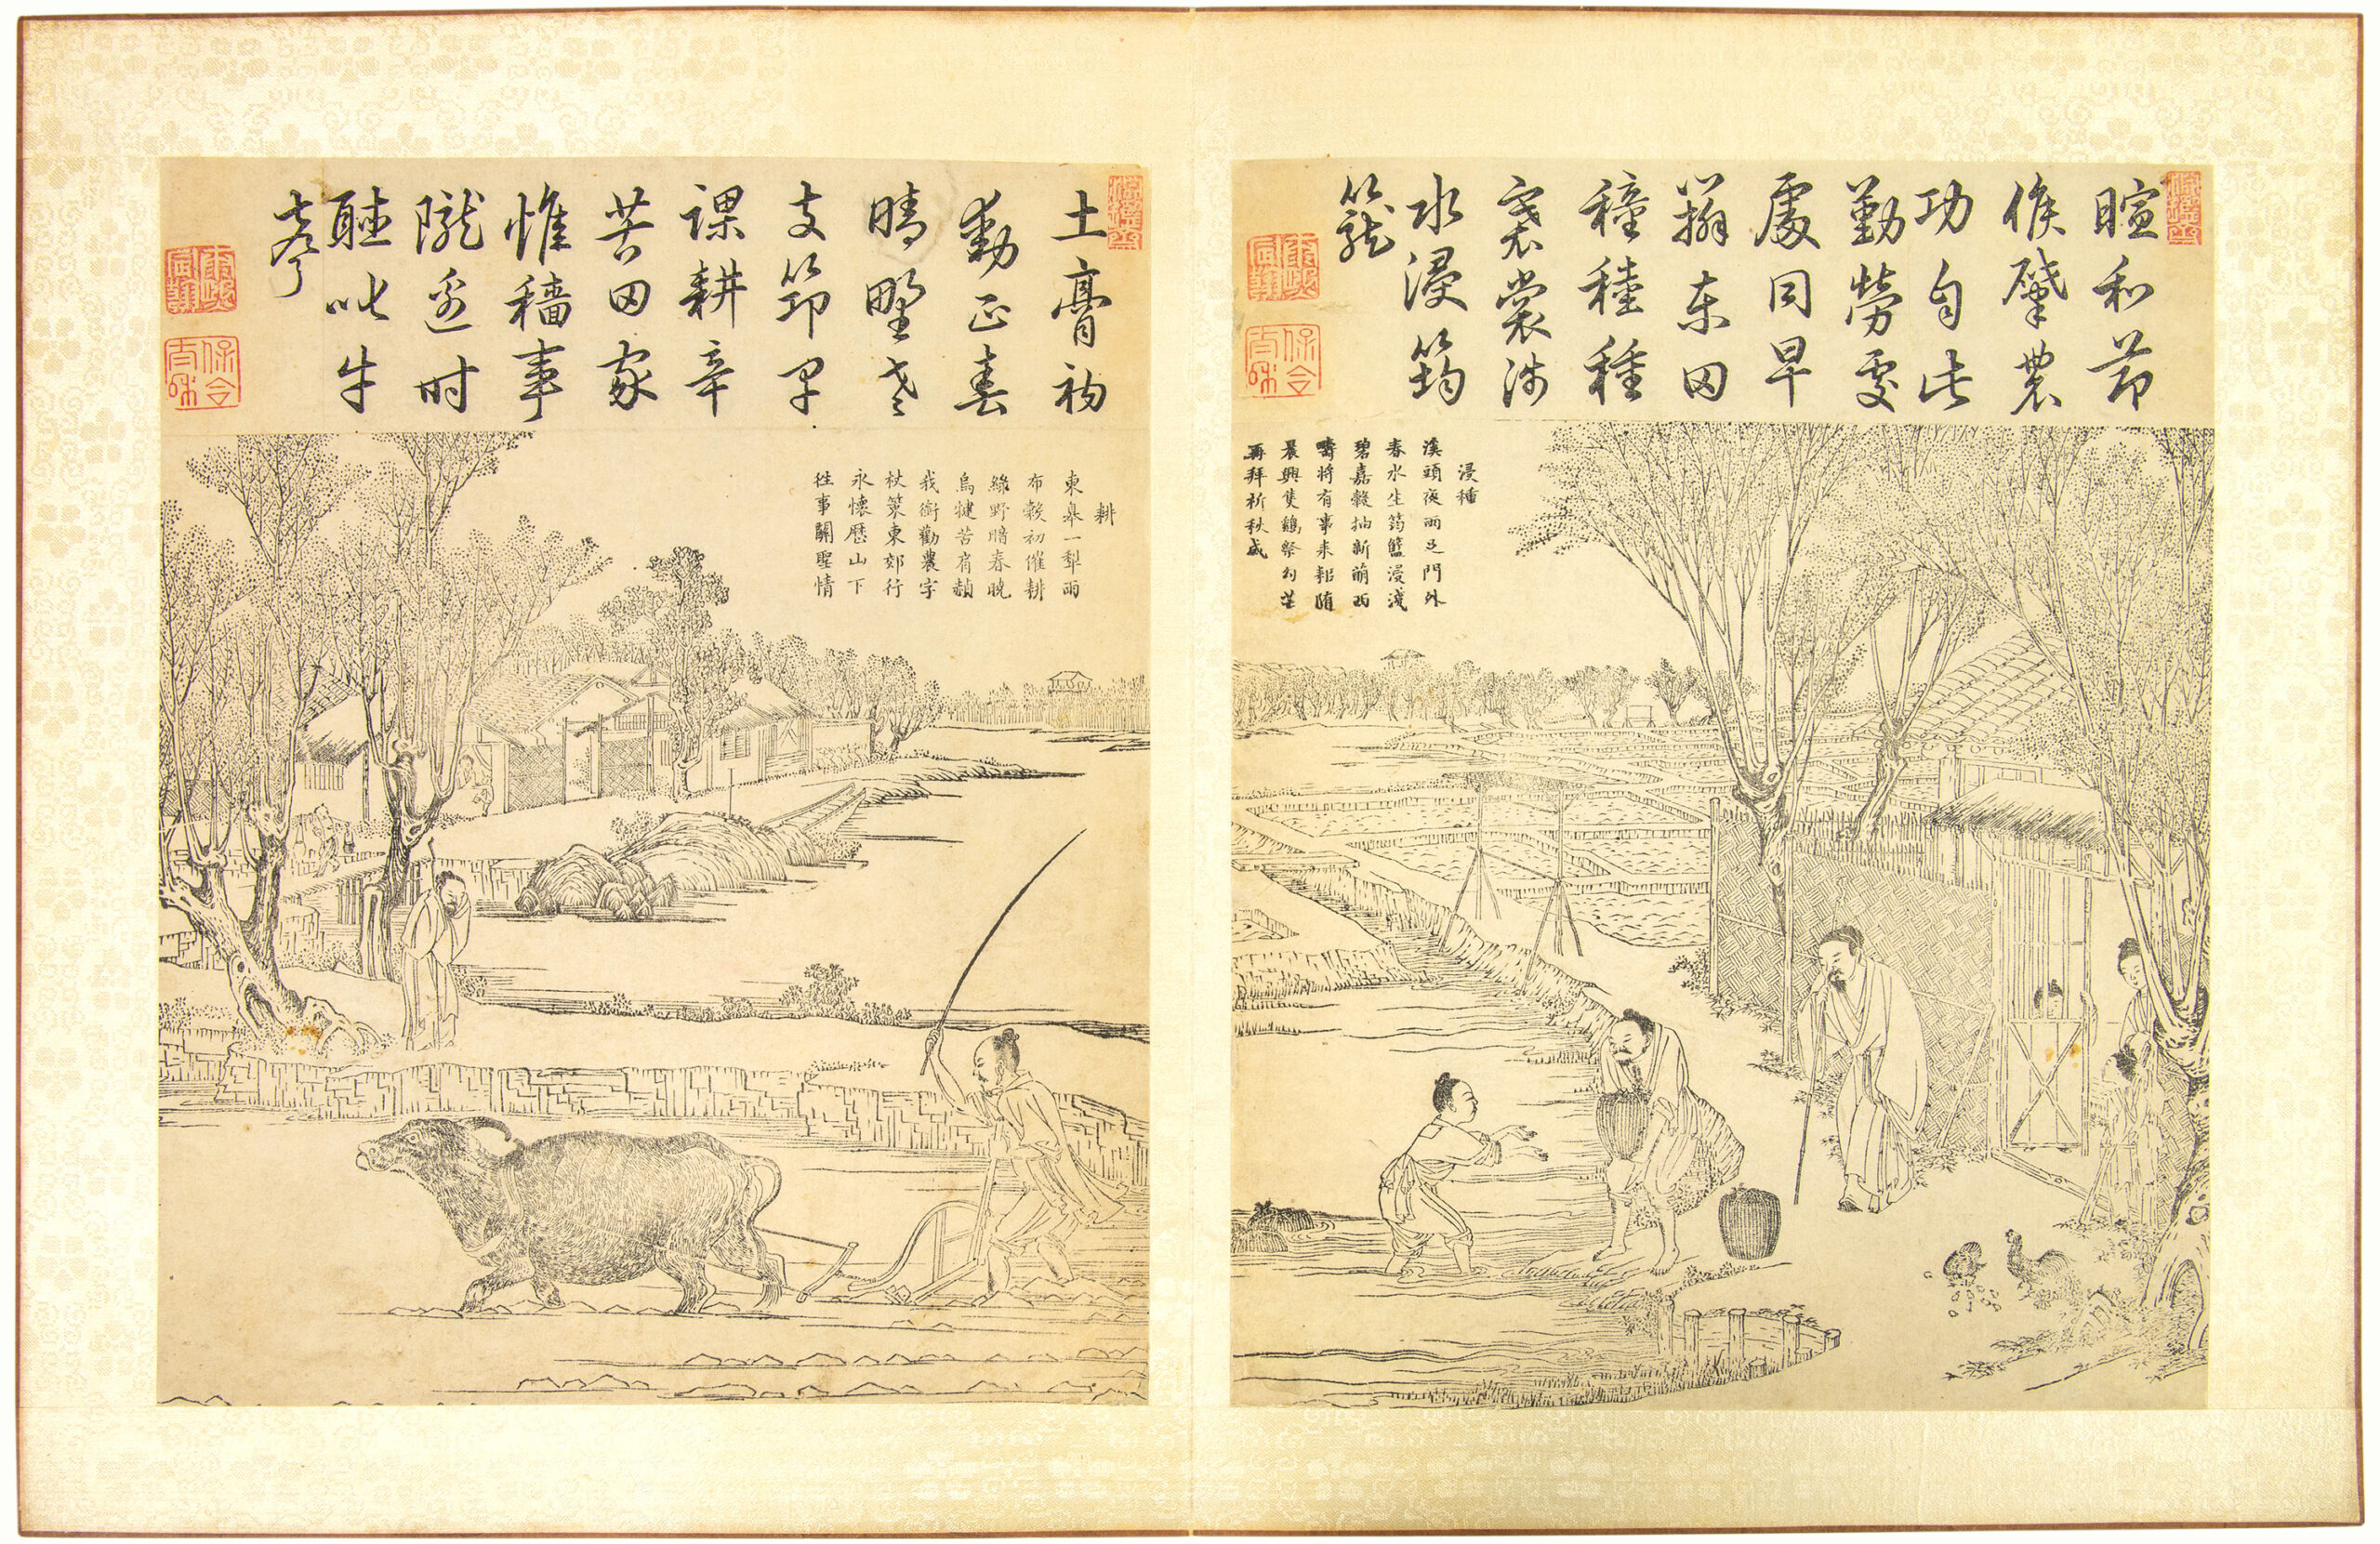 暄和節
候肇農
功自此
勤勞處
處同早
辨東田
穜稑種
褰裳涉
水浸筠
籠
康熙宸翰
保合太和
浸種
溪頭夜雨足門外
春水生筠籃浸淺
碧嘉穀抽新萌西
疇將有事耒耜隨
晨興隻鷄祭勾芒
再拜祈秋成
土膏初
動正春
晴野老
支筇早
課耕辛
苦田家
惟穡事
隴邊時
聽叱牛
聲
康熙宸翰
保合太和
耕
東皋一犁雨
布穀初催耕
綠野暗春曉
烏犍苦肩赬
我銜勸農字
杖策東郊行
永懷歷山下
往事關聖情